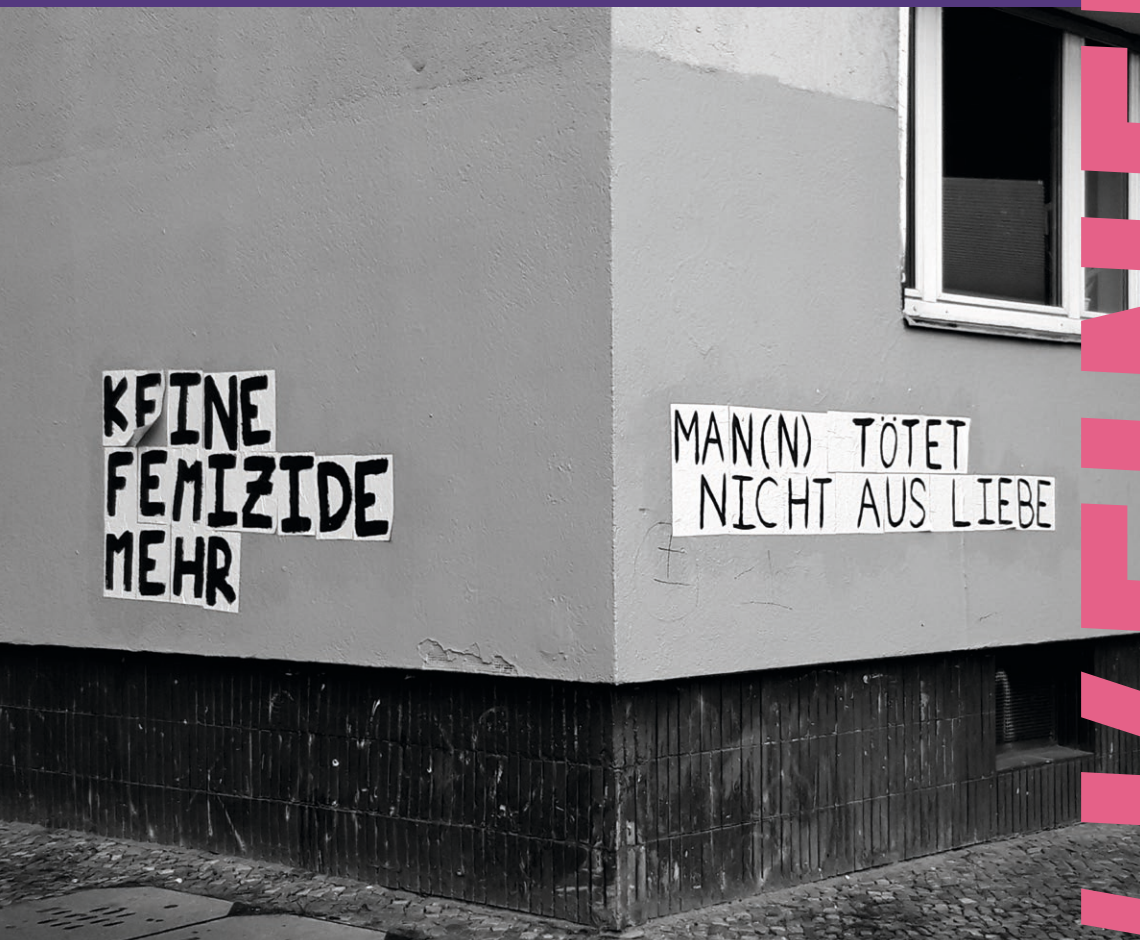 KEINE
FEMIZIDE
MEHR
MAN(N) TÖTET
NICHT AUS LIEBE